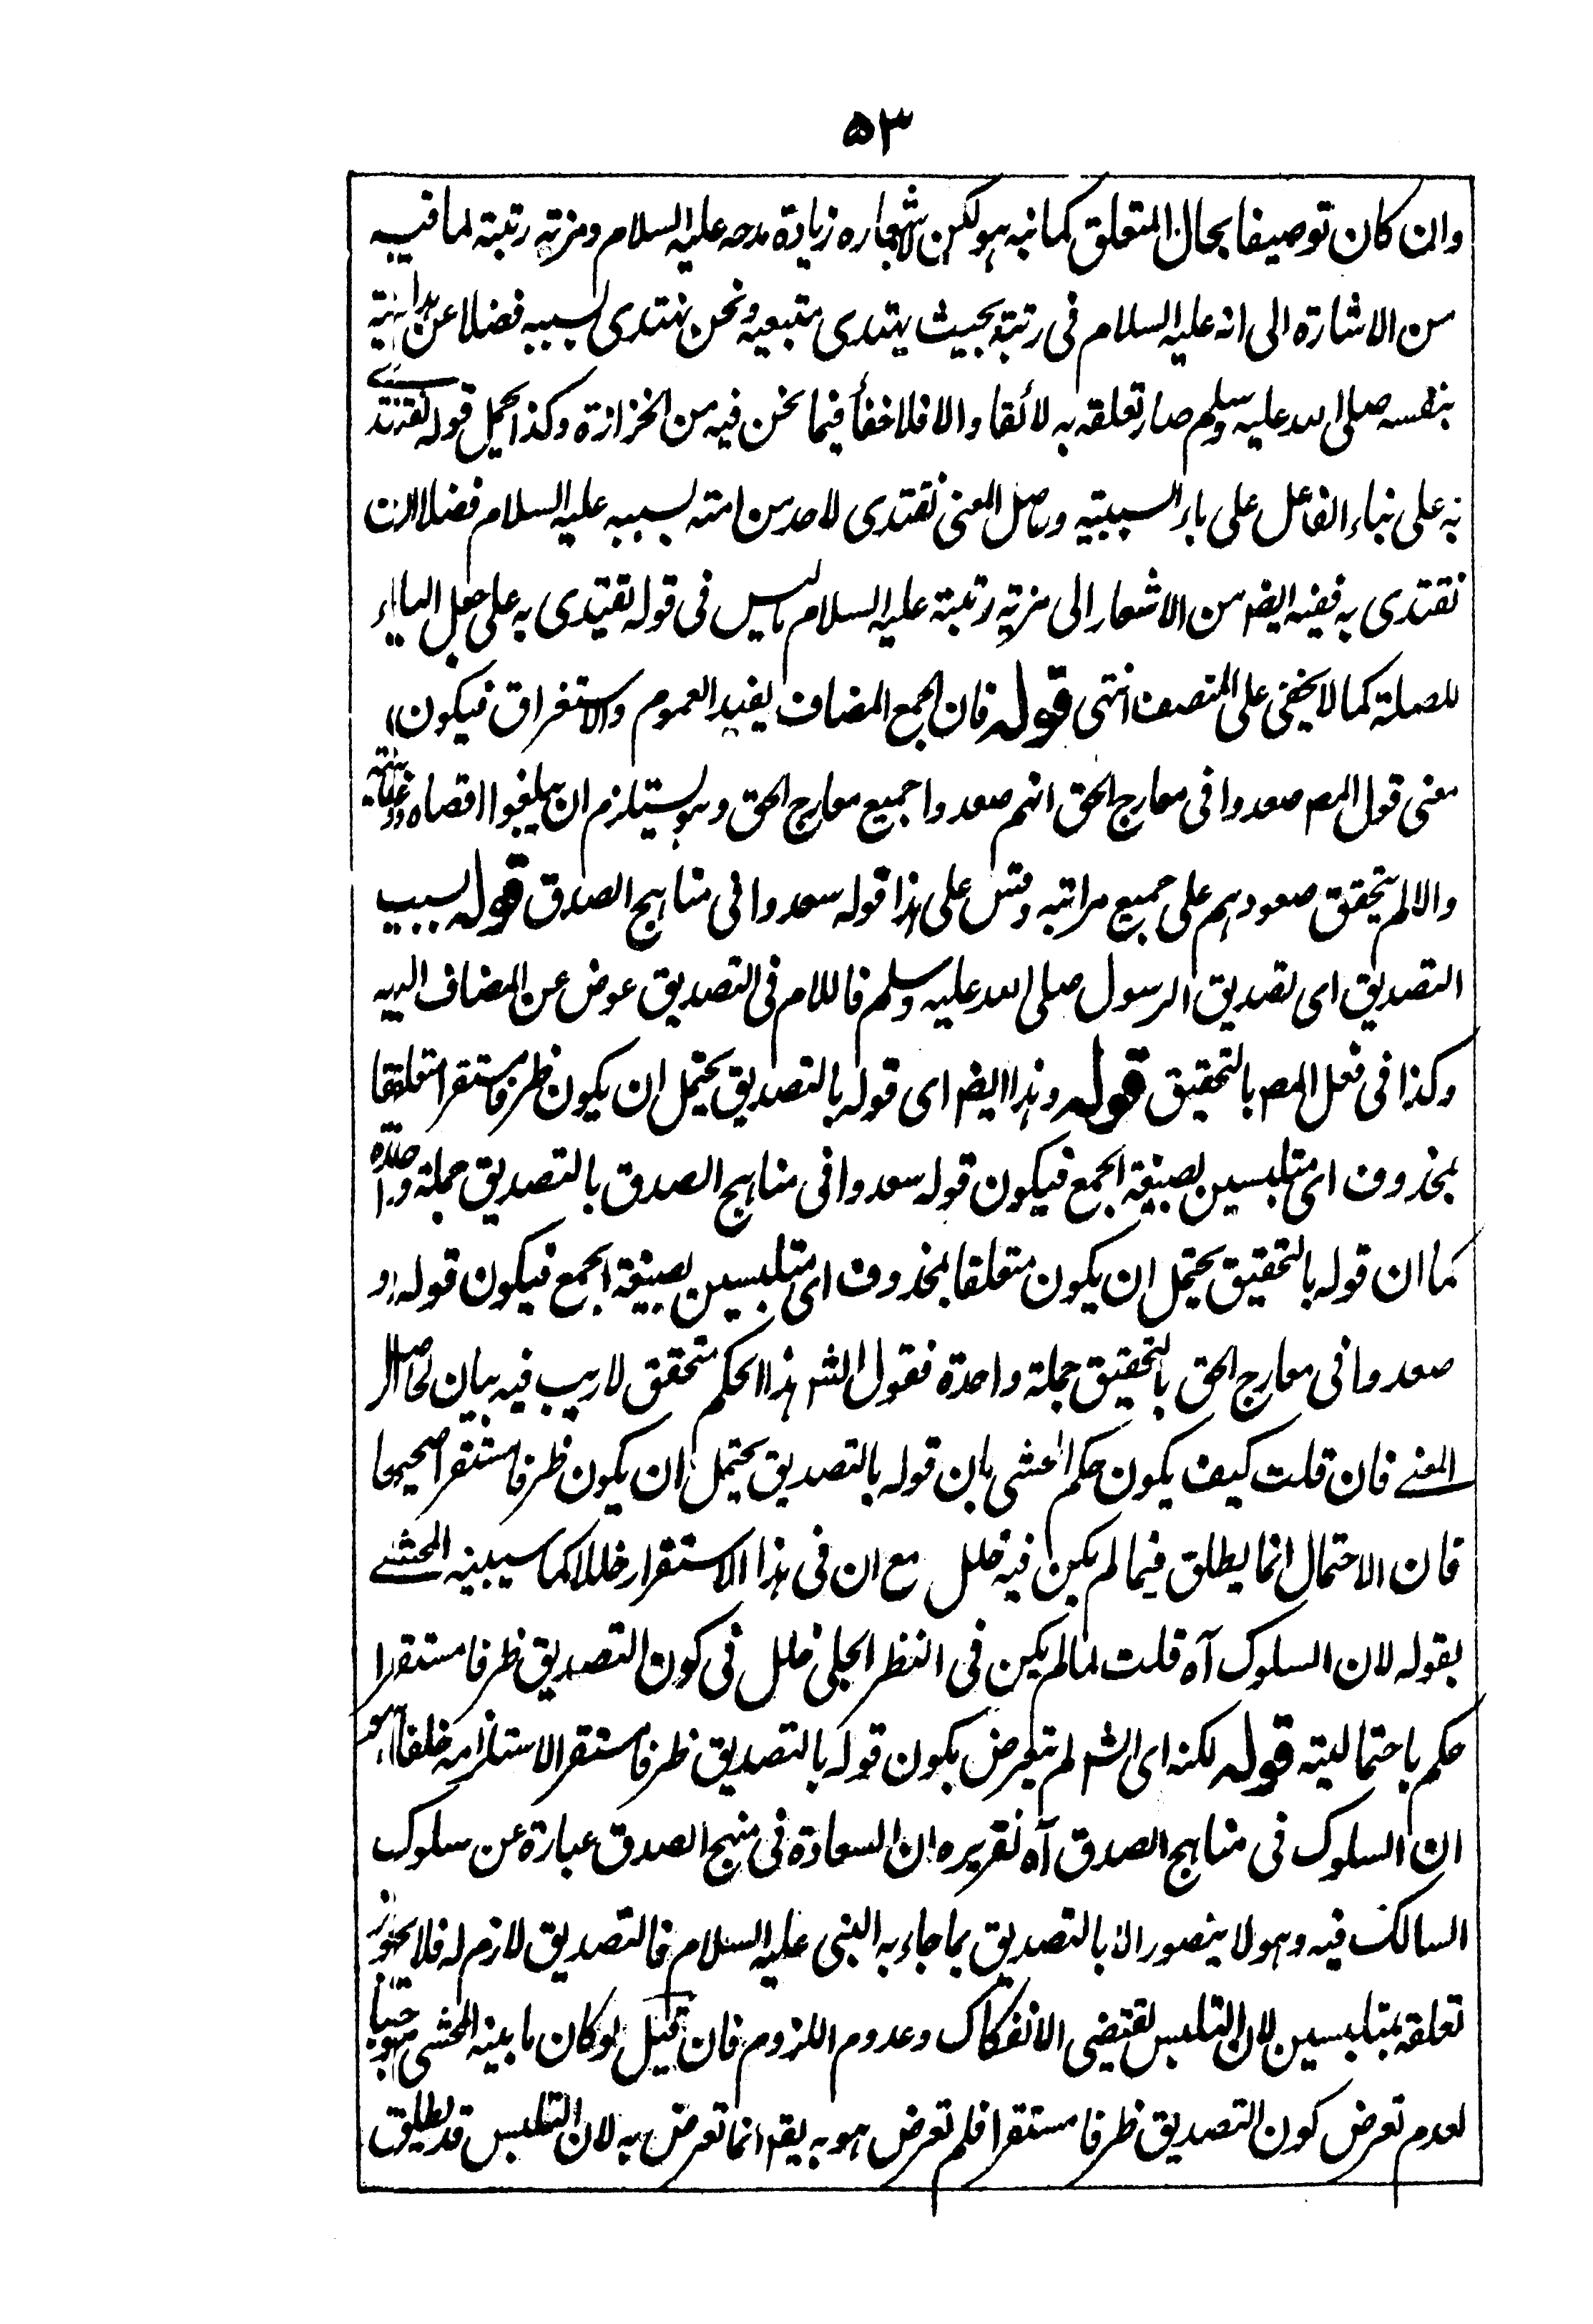 ٥٣
وان كان توصيفا بحال المتعلق كما نبه هو لكن لاشعاره زيادة مدحه عليه السلام ومزية رتبته لما فيه
من الاشارة الى انه عليه السلام فى رتبة بحيث يهتدى متبعيه ونحن نهتدى بسببه فضلا عن هدايته
بنفسه صلى الله عليه وسلم صار تعلقه به لائقا والا فلا خفأ فيما نحن فيه من الخزازة وكذا يحمل قوله نقتدى
به على بناء الفاعل على باء السببية وحاصل المعنى نقتدى لاحد من امته بسببه عليه السلام فضلا ان
نقتدى به ففيه ايضا من الاشعار الى مزية رتبته عليه السلام ما ليس فى قوله يقتدى به على جعل الباء
للصلة كما لا يخفى على المنصف انتهى قوله فان الجمع المضاف يفيد العموم والاستغراق فيكون
معنى قول المصـ صعدوا فى معارج الحق انهم صعدوا جميع معارج الحق وهو يستلزم ان يبلغوا اقصاه وغايته
والا لم يتحقق صعودهم على جميع مراتبه وقس على هذا قوله سعدوا فى مناهج الصدق قوله بسبب
التصديق اى تصديق الرسول صلى الله عليه وسلم فاللام فى التصديق عوض عن المضاف اليه
وكذا فى فعل المصـ بالتحقيق قوله وهذا ايضا اى قوله بالتصديق يحتمل ان يكون ظرفا مستقرا متعلقا
بمحذوف اى متلبسين بصيغة الجمع فيكون قوله سعدوا فى مناهج الصدق بالتصديق جملة واحدة
كما ان قوله بالتحقيق يحتمل ان يكون متعلقا بمحذوف اى متلبسين بصيغة الجمع فيكون قوله و
صعدوا فى معارج الحق بالتحقيق جملة واحدة فقول الشـ هذا الحكم متحقق لا ريب فيه بيان لحاصل
المعنى فان قلت كيف يكون حكم المحشى بان قوله بالتصديق يحتمل ان يكون ظرفا مستقرا صحيحا
فان الاحتمال انما يطلق فيما لم يكن فيه خلل مع ان فى هذا الاستقرار خللا كما سيبينه المحشى
بقوله لان السلوك آه قلت لما لم يكن فى النظر الجلى خلل فى كون التصديق ظرفا مستقرا
حكم باحتماليته قوله لكنه اى الشـ لم يتعرض بكون قوله بالتصديق ظرفا مستقرا لاستلزامه خلفا
ان السلوك فى مناهج الصدق آه تقريره ان السعادة فى منهج الصدق عبارة عن سلوك
السالك فيه وهو لا يتصور الا بالتصديق بما جاء به النبى عليه السلام فالتصديق لازم له فلا يجوز
تعلقه بمتلبسين لان التلبس يقتضى الانفكاك وعدوم اللزوم فان قيل لو كان ما بينه المحشى موجبا
لعدم تعرض كون التصديق ظرفا مستقرا فلم تعرض هو به يقـ انما تعرض به لان التلبس قد يطلق